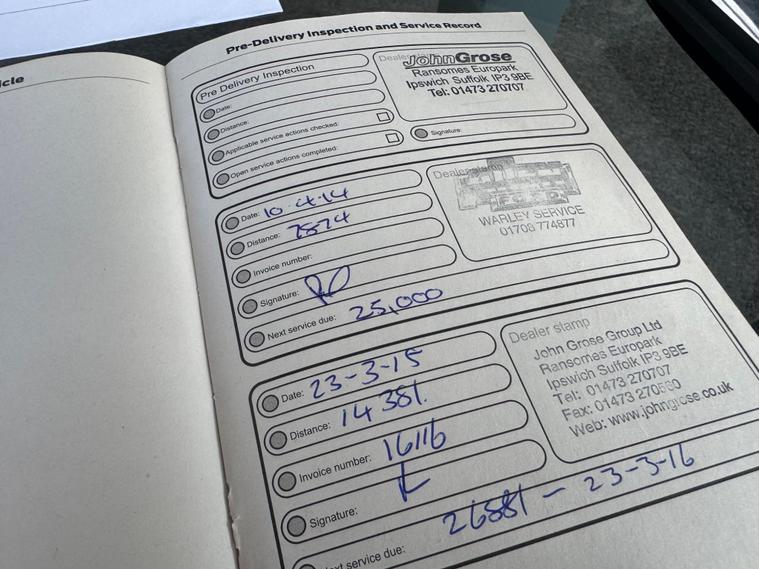 icle
Pre-Delivery Inspection and Service Record
Pre Delivery Inspection
Date:
Distance:
Applicable service actions checked:
Open service actions completed:
Dealer
JohnGrose
Ransomes Europark
Ipswich Suffolk IP3 9BE
Tel: 01473 270707
Signature:
Date: 10.4.14
Distance: 7874
Invoice number:
Signature:
Next service due: 25,000
Dealer stamp
WARLEY SERVICE
01708 774877
Date: 23-3-15
Distance: 14381.
Invoice number: 16116
Signature:
Next service due: 26881 - 23-3-16
Dealer stamp
John Grose Group Ltd
Ransomes Europark
Ipswich Suffolk IP3 9BE
Tel: 01473 270707
Fax: 01473 270530
Web: www.johngrose.co.uk